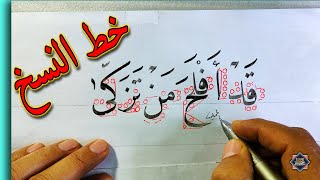 خط النسخ
قَدْ أَفْلَحَ مَنْ تَزَكَّىٰ